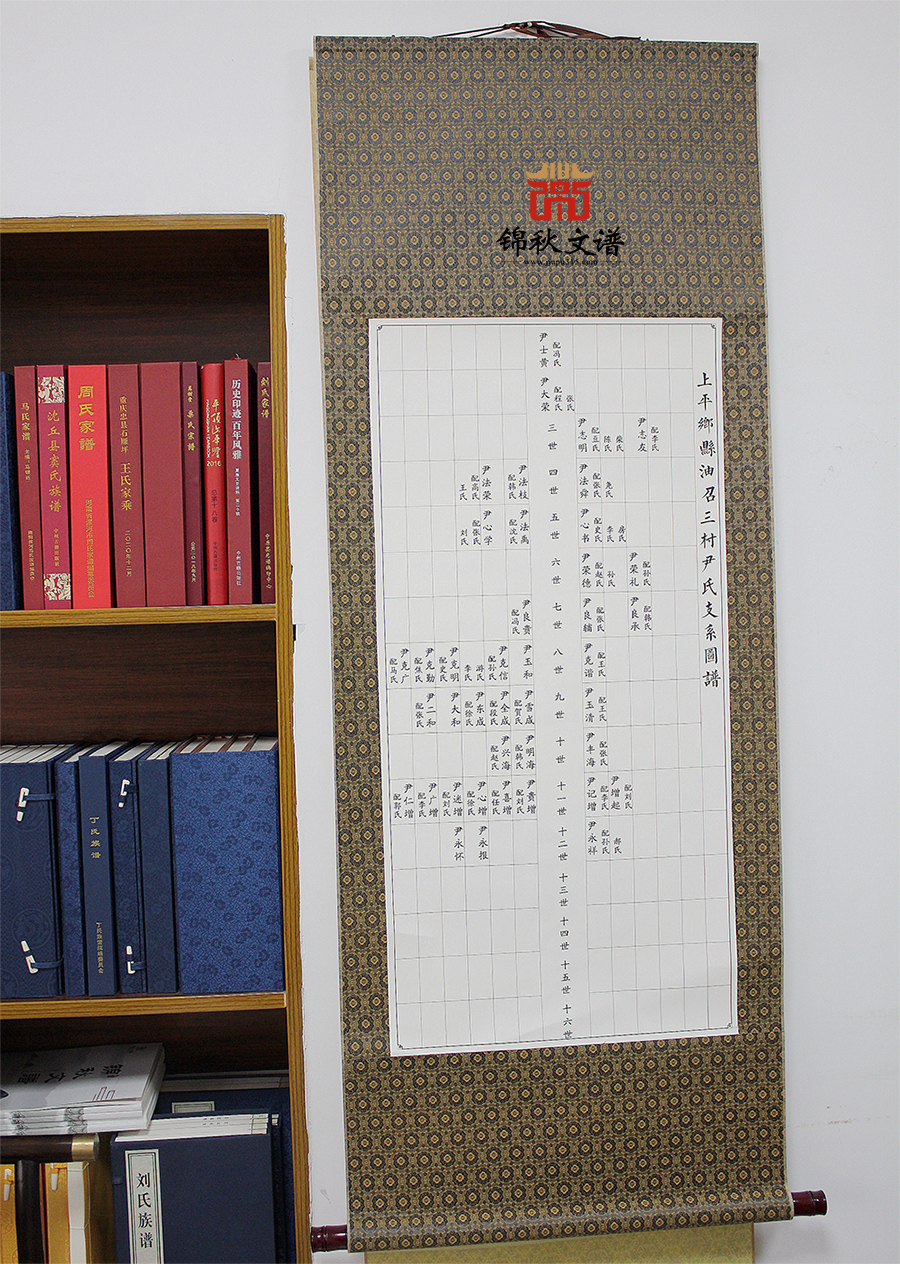 锦秋文谱
www.pupu315.com
上平鄉縣油召三村尹氏支系圖譜
尹士黄
配冯氏
尹大荣
配程氏
张氏
三世
尹志明
配豆氏
陈氏
柴氏
尹志友
配李氏
四世
尹法舜
配张氏
尧氏
尹法枝
配韩氏
尹法荣
配高氏
王氏
五世
尹心书
配史氏
李氏
房氏
尹法禹
配沈氏
尹心学
配张氏
刘氏
六世
尹荣德
配赵氏
孙氏
尹荣礼
配孙氏
七世
尹良辅
配张氏
尹良承
配韩氏
尹良贵
配冯氏
八世
尹克谐
配王氏
尹玉和
尹克信
配孙氏
游氏
李氏
尹克明
配史氏
尹克勤
配张氏
尹克广
配马氏
九世
尹玉清
配王氏
尹雪成
配贺氏
尹全成
配段氏
尹东成
配徐氏
尹大和
尹二和
配张氏
十世
尹丰海
配张氏
尹明海
配韩氏
尹兴海
配赵氏
十一世
尹记增
配李氏
尹增起
配刘氏
尹贵增
配刘氏
尹喜增
配任氏
尹心增
配徐氏
尹迷增
配刘氏
尹广增
配李氏
尹仁增
配郭氏
十二世
尹永祥
配孙氏
郝氏
尹永报
尹永怀
十三世
十四世
十五世
十六世
马氏家谱
沈丘县窦氏族谱
中州古籍出版社
周氏家譜
重庆忠县石堰坪
王氏家乘
二〇一〇年十二月
桑氏宗谱
2016
总第十八卷
历史印迹 百年风雅
中州古籍出版社
刘氏家谱
丁氏族谱
丁氏族谱编纂委员会
锦秋文谱
刘氏族谱